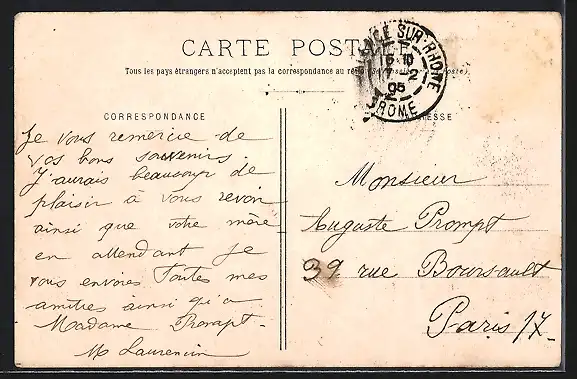 CARTE POSTALE
Tous les pays étrangers n'acceptent pas la correspondance au
SUR-RHONE
16 10
7 2
05
DROME
CORRESPONDANCE
Je vous remercie de
vos bons souvenirs.
J'aurais beaucoup de
plaisir à vous revoir
ainsi que votre mère
en attendant je
vous envoies Toutes mes
amitiés ainsi qu'a
Madame Prompt.
M Laurencin
Monsieur
Auguste Prompt
39 rue Boursault
Paris 17.